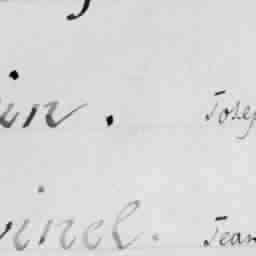 in. Josep
inel. Jean